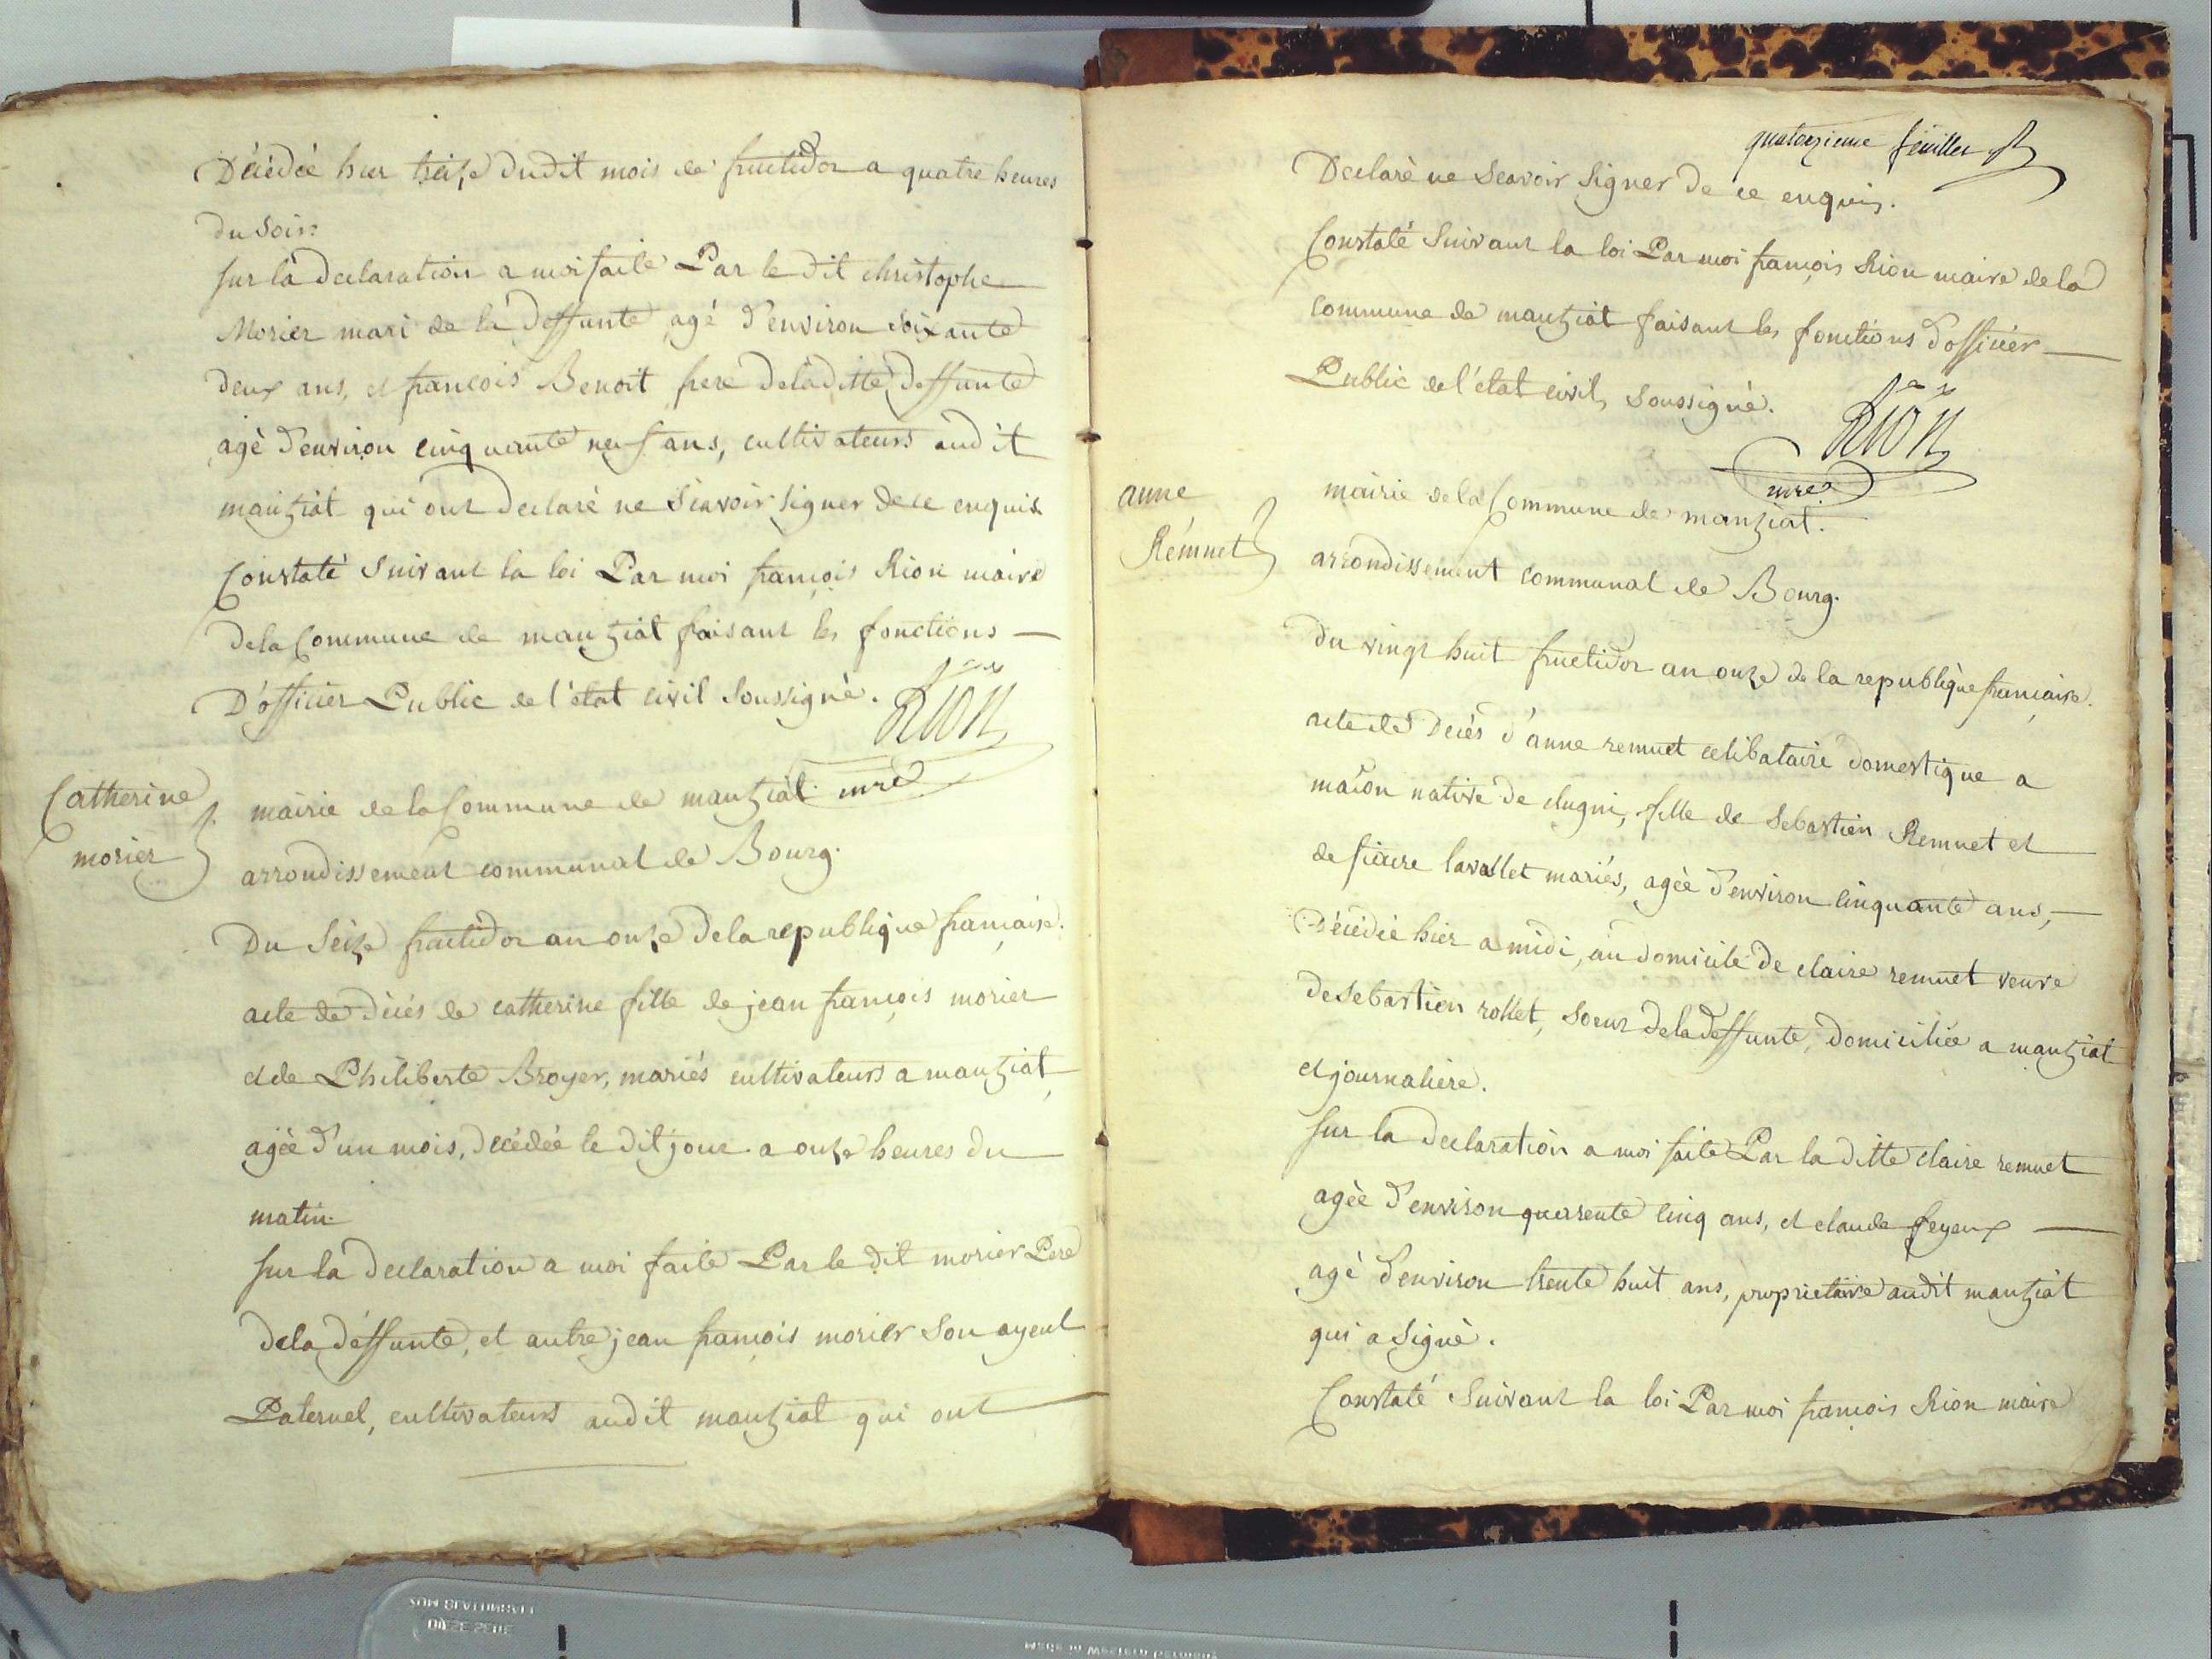 Décédée hier treize dudit mois de fructidor a quatre heures
du soir.
sur la declaration a moi faite Par le dit christophe
Morier mari de la deffunte agé d'environ soixante
deux ans, et francois Benoit frere de la ditte deffunte
agè d'environ cinquante neuf ans, cultivateurs audit
mantziat qui ont declaré ne sçavoir signer de ce enquis
Constaté suivant la loi Par moi françois Rion maire
de la Commune de mantziat faisant les fonctions
D'officier Public de l'état civil soussigné. Rion
mre
Catherine
morier
mairie de la Commune de mantziat.
arrondissement communal de Bourg.
Du seize fructidor an onze de la republique française.
acte de décés de catherine fille de jean françois morier
et de Philiberte Broyer, mariés cultivateurs a mantziat,
agée d'un mois, decédée le dit jour a onze heures du
matin.
sur la declaration a moi faite Par le dit morier Pere
de la déffunte, et autre jean françois morier son ayeul
Paternel, cultivateurs audit mantziat qui ont
quatorzieme feuillet
Declaré ne scavoir signer de ce enquis.
Constaté suivant la loi Par moi françois Rion maire de la
commune de mantziat faisant les fonctions d'officier
Public de l'état civil, soussigné.
Rion
mre
anne
Remuet
mairie de la Commune de mantziat.
arrondissement communal de Bourg.
Du vingt huit fructidor an onze de la republique française.
acte de decés d'anne remuet celibataire domestique a
macon native de clugni, fille de sebastien Remuet et
de lavallet mariés, agée d'environ cinquante ans,
Décédée hier a midi, au domicile de claire remuet veuve
de sebastien rollet, soeur de la deffunte, domiciliée a mantziat
et journaliere.
sur la declaration a moi faite Par la ditte claire remuet
agée d'environ quarente cinq ans, et claude feyeux
agé d'environ trente huit ans, proprietaire audit mantziat
qui a signé.
Constaté suivant la loi Par moi françois Rion maire